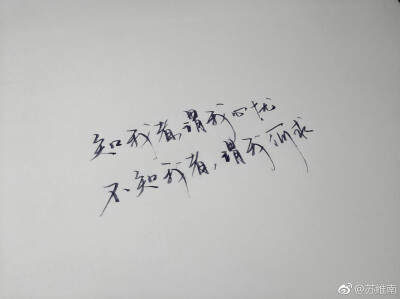 知我者,谓我心忧
不知我者,谓我何求
@苏维南